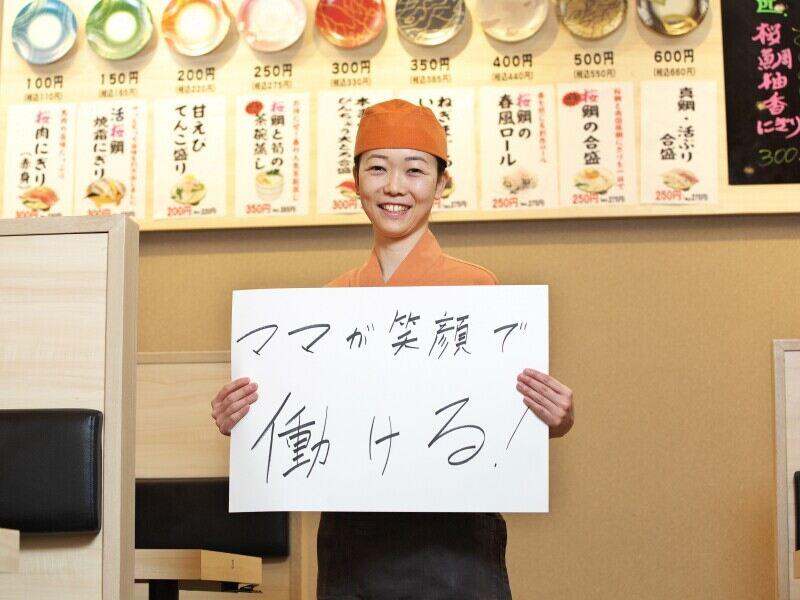 100円
(税込110円)
150円
(税込165円)
200円
(税込220円)
250円
(税込275円)
300円
(税込330円)
350円
(税込385円)
400円
(税込440円)
500円
(税込550円)
600円
(税込660円)
桜肉にぎり
(赤身)
300円
活桜鯛
焼霜にぎり
300円
甘えび
てんこ盛り
200円
桜鯛と筍の
茶碗蒸し
350円
300円
桜鯛の
春風ロール
250円
桜鯛の合盛
250円
真鯛・活ぶり
合盛
250円
桜鯛柚香にぎり
300
ママが笑顔で
働ける!